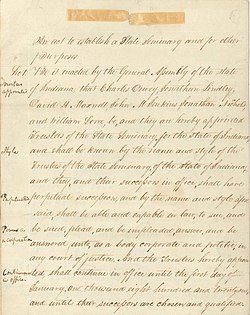 An act to establish a State Seminary and for other
purposes
No. 1 Be it enacted by the General Assembly of the State
Trustees appointed
of Indiana, that Charles Dewey, Jonathan Lindley,
David H. Maxwell, John M. Jenkins Jonathan Nichols
and William Lowe, be, and they are hereby appointed
Trustees of the State Seminary, for the State of Indiana,
Style
and shall be known by the name and style of the
Trustees of the State Seminary of the State of Indiana
and they, and their successors in office, shall have
Perpetual
perpetual succession, and by the name and style afore
said, shall be able and capable in law, to sue, and
Powers as a corporation
be sued, plead, and be impleaded, answer, and be
answered unto, as a body corporate and politic, in
any court of justice. And the Trustees hereby appoint
Continuance in office
ed shall continue in office until the first day of
January, one thousand eight hundred and twenty one,
and until their successors are chosen and qualified.